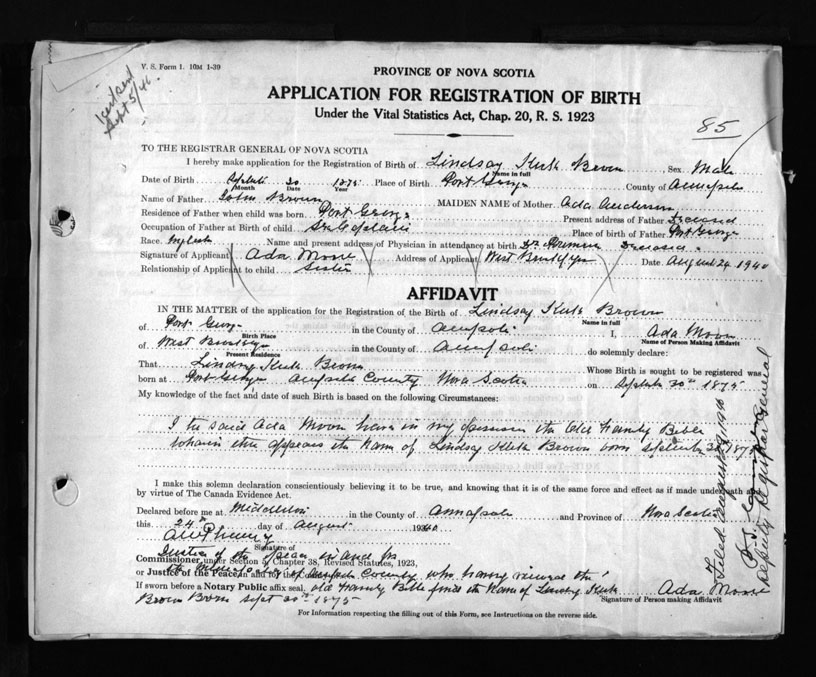 V. S. Form 1. 10M 1-39
Sept 5/41
PROVINCE OF NOVA SCOTIA
APPLICATION FOR REGISTRATION OF BIRTH
Under the Vital Statistics Act, Chap. 20, R. S. 1923
85
TO THE REGISTRAR GENERAL OF NOVA SCOTIA
I hereby make application for the Registration of Birth of Lindsay Brown Sex Male
Name in full
Date of Birth 20 1875 Place of Birth Port George County of Annapolis
Month Date Year
Name of Father John Brown MAIDEN NAME of Mother Ada Anderson
Residence of Father when child was born Port George Present address of Father Deceased
Occupation of Father at Birth of child Sea Captain Place of birth of Father Port George
Race English Name and present address of Physician in attendance at birth Dr. Deceased
Signature of Applicant Ada Moore Address of Applicant West Date August 24 1940
Relationship of Applicant to child Sister
AFFIDAVIT
IN THE MATTER of the application for the Registration of the Birth of Lindsay Brown
Name in full
of Port George in the County of Annapolis I, Ada Moore
Birth Place
Name of Person Making Affidavit
of West in the County of Annapolis do solemnly declare:
Present Residence
That Lindsay Brown Whose Birth is sought to be registered was
born at Port George Annapolis County Nova Scotia on 20th 1875
My knowledge of the fact and date of such Birth is based on the following Circumstances:
I the said Ada Moore have in my possession the Old Family Bible
wherein there appears the Name of Lindsay Brown born September 20 1875
I make this solemn declaration conscientiously believing it to be true, and knowing that it is of the same force and effect as if made under oath and
by virtue of The Canada Evidence Act.
Declared before me at Middleton in the County of Annapolis and Province of Nova Scotia
this 24th day of August 1940
Signature of
Justice of the Peace in and for
Commissioner under Section 5, Chapter 38, Revised Statutes, 1923,
or Justice of the Peace, in and for the County who having viewed the
If sworn before a Notary Public affix seal. old Family Bible finds the Name of Lindsay
Brown Born Sept 20th 1875
Ada Moore
Signature of Person making Affidavit
For Information respecting the filling out of this Form, see Instructions on the reverse side.
Filed August 1940
Deputy Registrar General